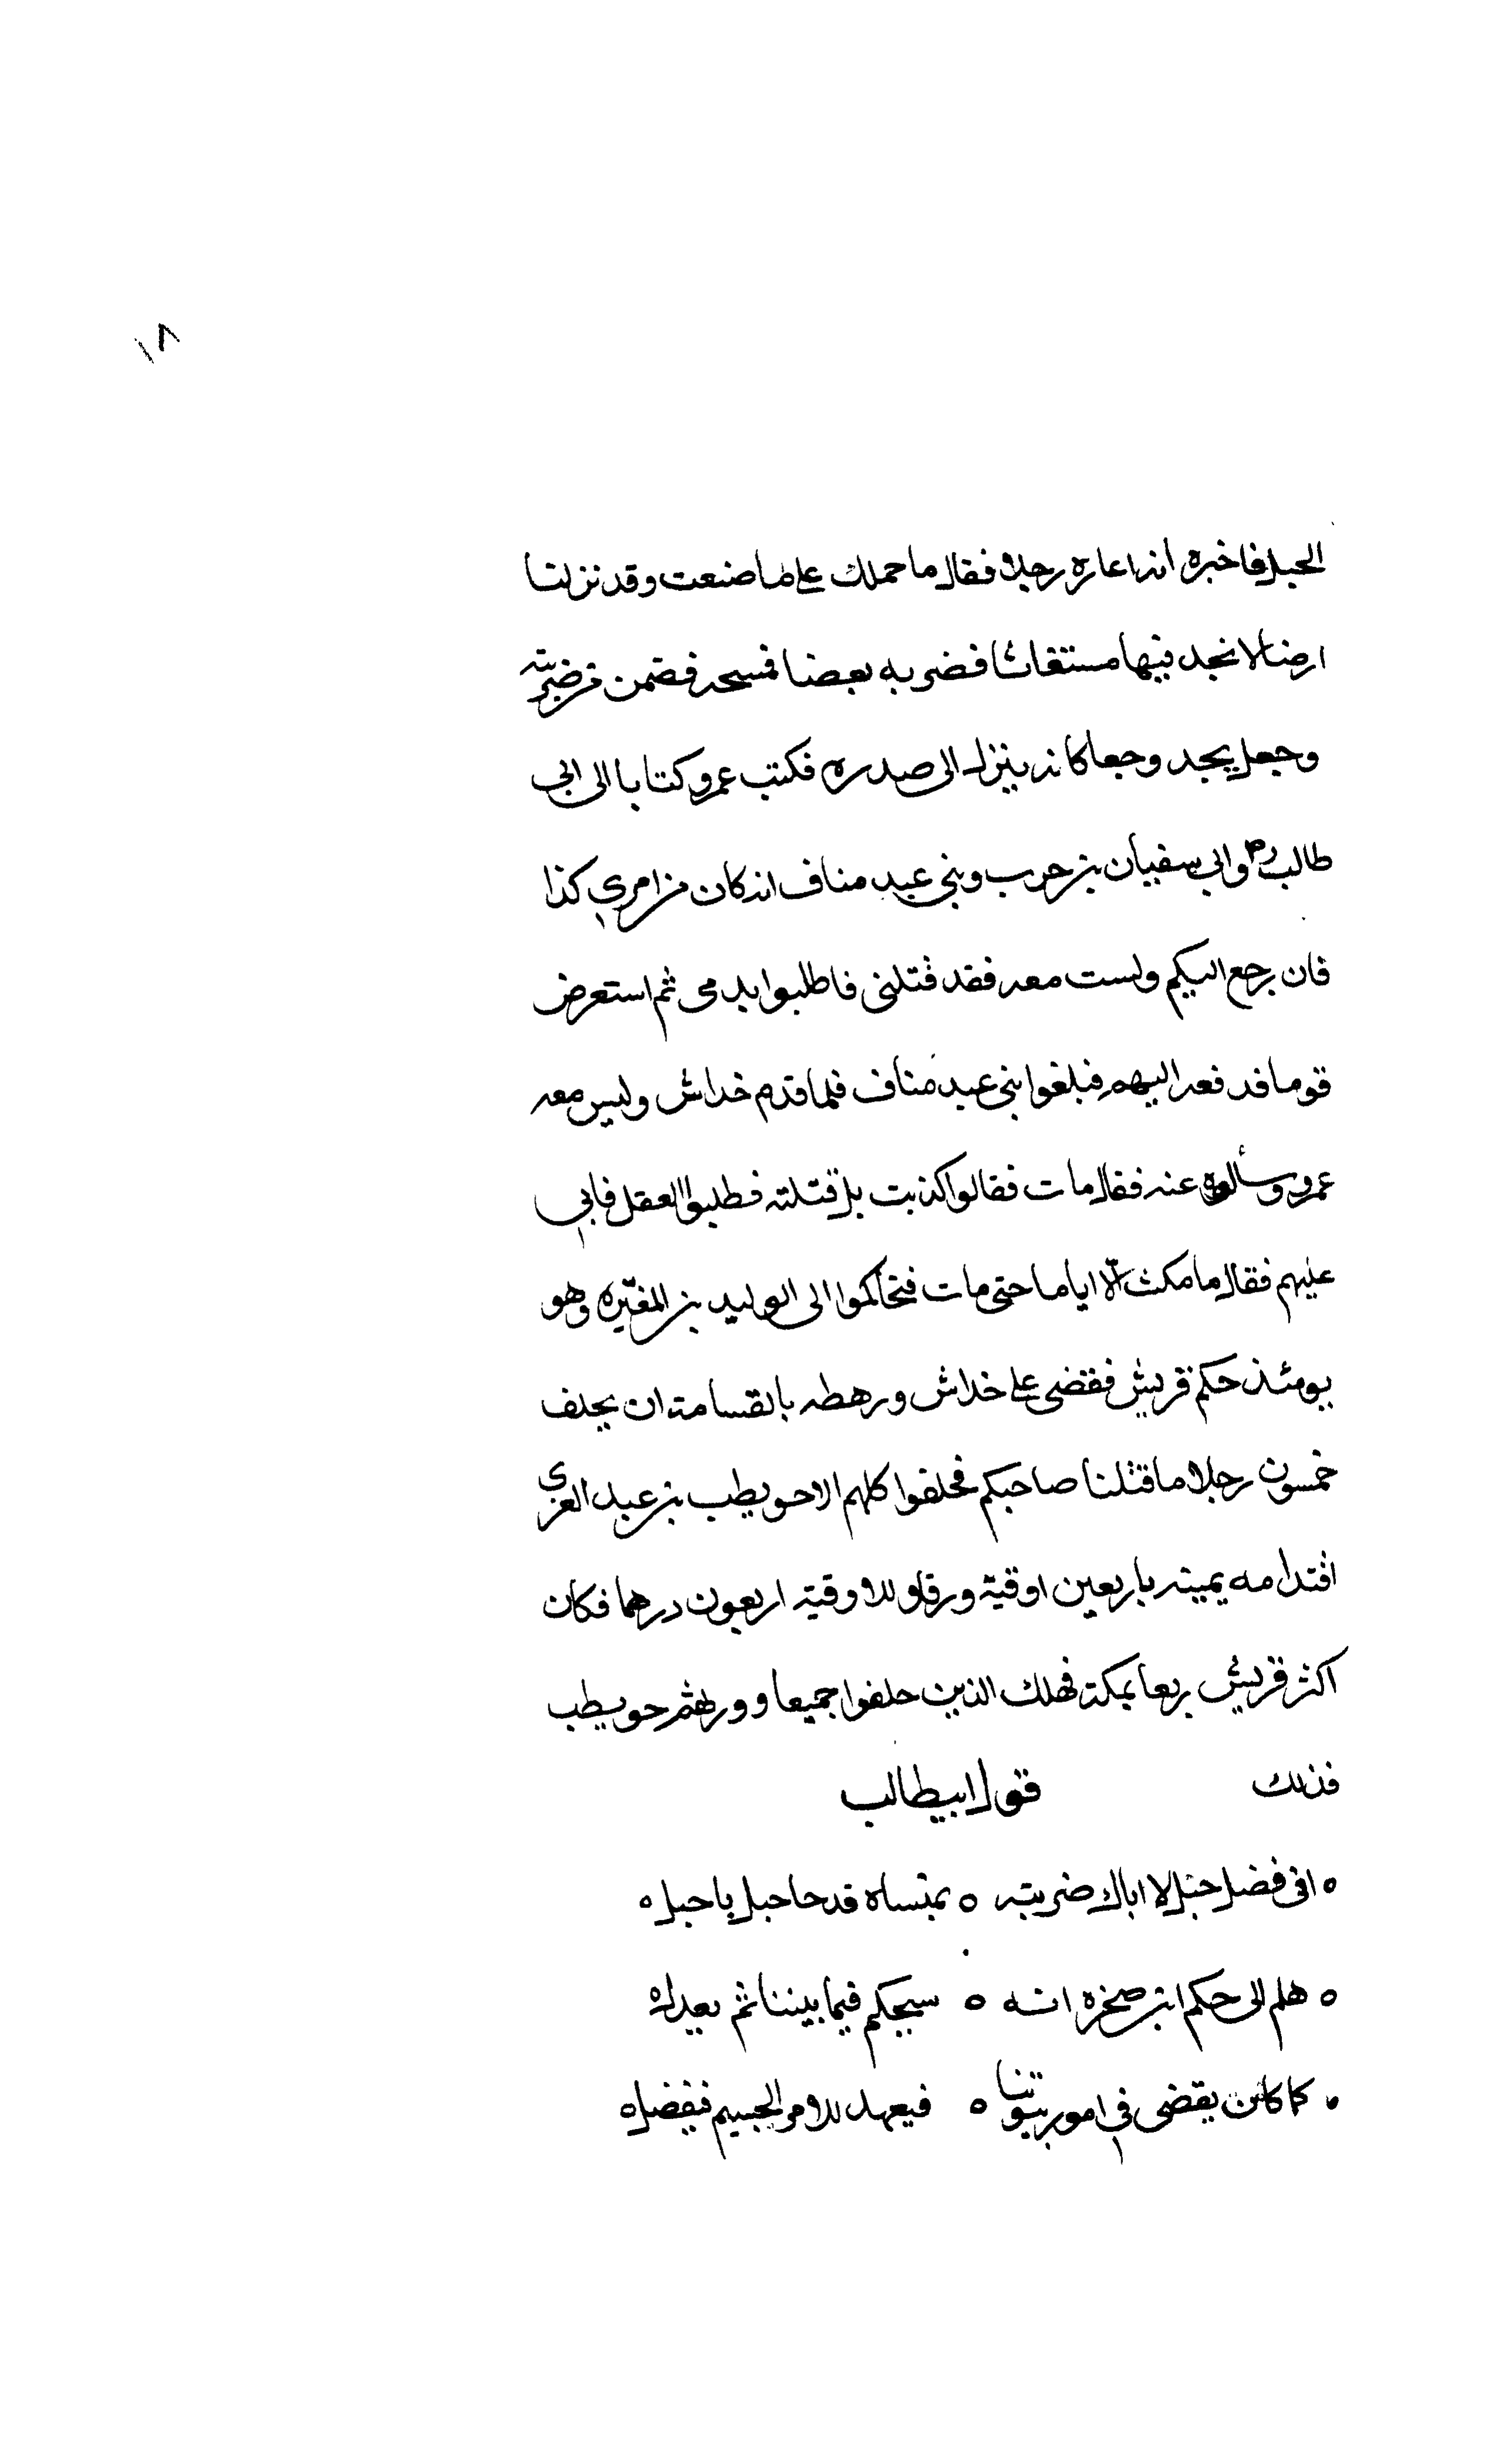 ١٨
الحبل فاخبره انه اعاره رجلا فقال ما حملك على ما صنعت وقد نزلنا
ارضا لا نجد فيها مستغاثا فضربه بعصا فمسحه فضمن من ضربته
وجعل يجد وجعا كانه ينزل الى صدره فكتب عمرو كتابا الى ابي
طالب وابي سفيان بن حرب وبني عبد مناف انه كان من امري كذا
فان رجع اليكم ولست معه فقد قتلني فاطلبوا بدمي ثم استعرض
قوما فدفعه اليهم فبلغوا بني عبد مناف فلما قدم خداش وليس معه
عمرو وسألوه عنه فقال مات فقالوا كذبت بل قتلته فطلبوا العقل فابي
عليهم فقال ما مكث الّا اياما حتى مات فتحاكموا الى الوليد بن المغيره وهو
يومئذ حكم قريش فقضى على خداش ورهطه بالقسامة ان يحلف
خمسون رجلا ما قتلنا صاحبكم فحلفوا كلهم الا حويطب بن عبد العزى
افتدا مه يمينه باربعين اوقية ورقا وللاوقية اربعون درهما فكان
اكثر قريش ربعا بمكة فهلك الذين حلفوا جميعا وورثهم حويطب
فذلك قول ابيطالب
ه افى فضل حبل لا اباك ضربته ه بمنساه قد جا حبل باحبل ه
ه هلم الى حكم ابن صخره انه ه سيحكم فيما بيننا ثم يعدل ه
ه كما كان يقضى في امور بيوتنا ه فيعهد للامر الجسيم فيفضل ه